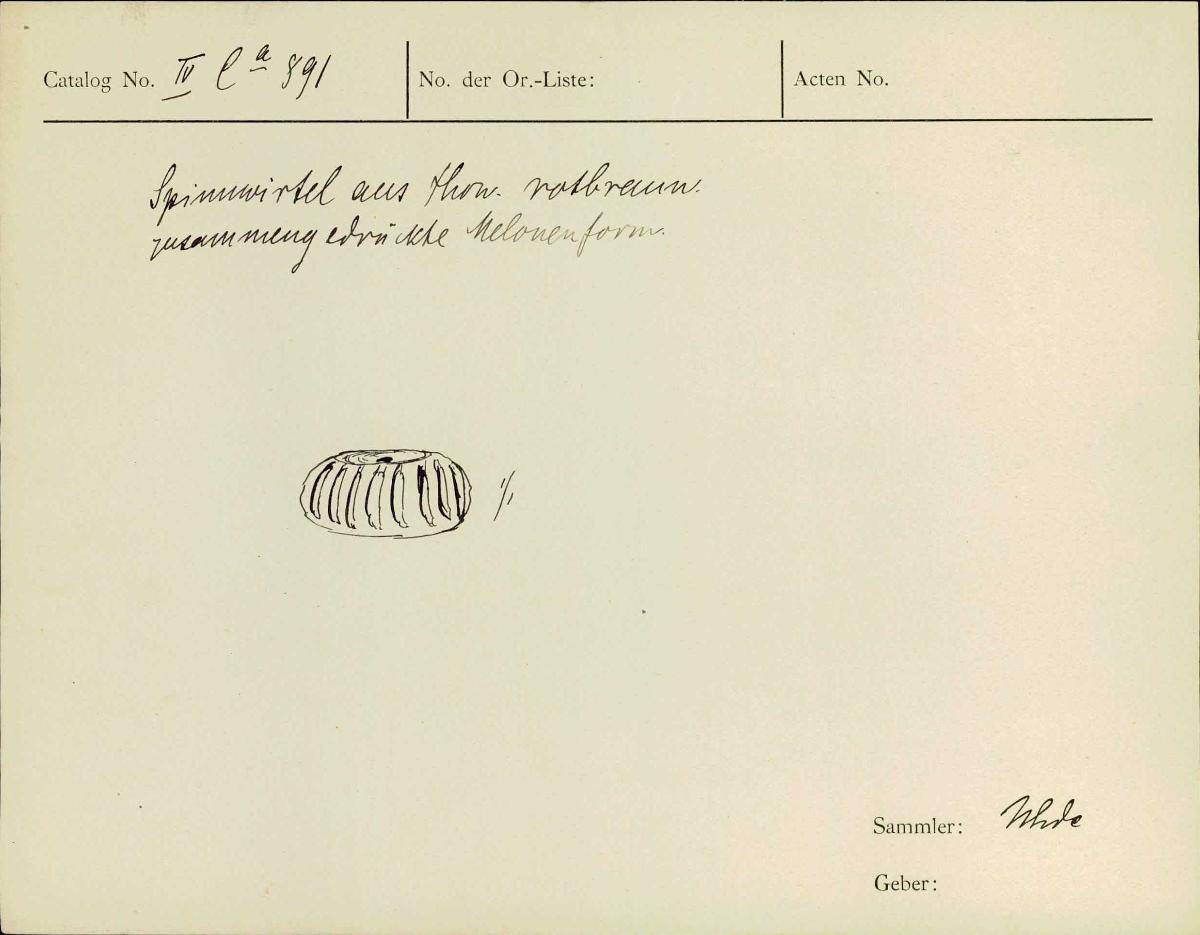 Catalog No. IV C a 891
No. der Or.-Liste:
Acten No.
Spinnwirtel aus Thon. rotbraun.
zusammengedrückte Melonenform.
1/1
Sammler: Uhde
Geber: